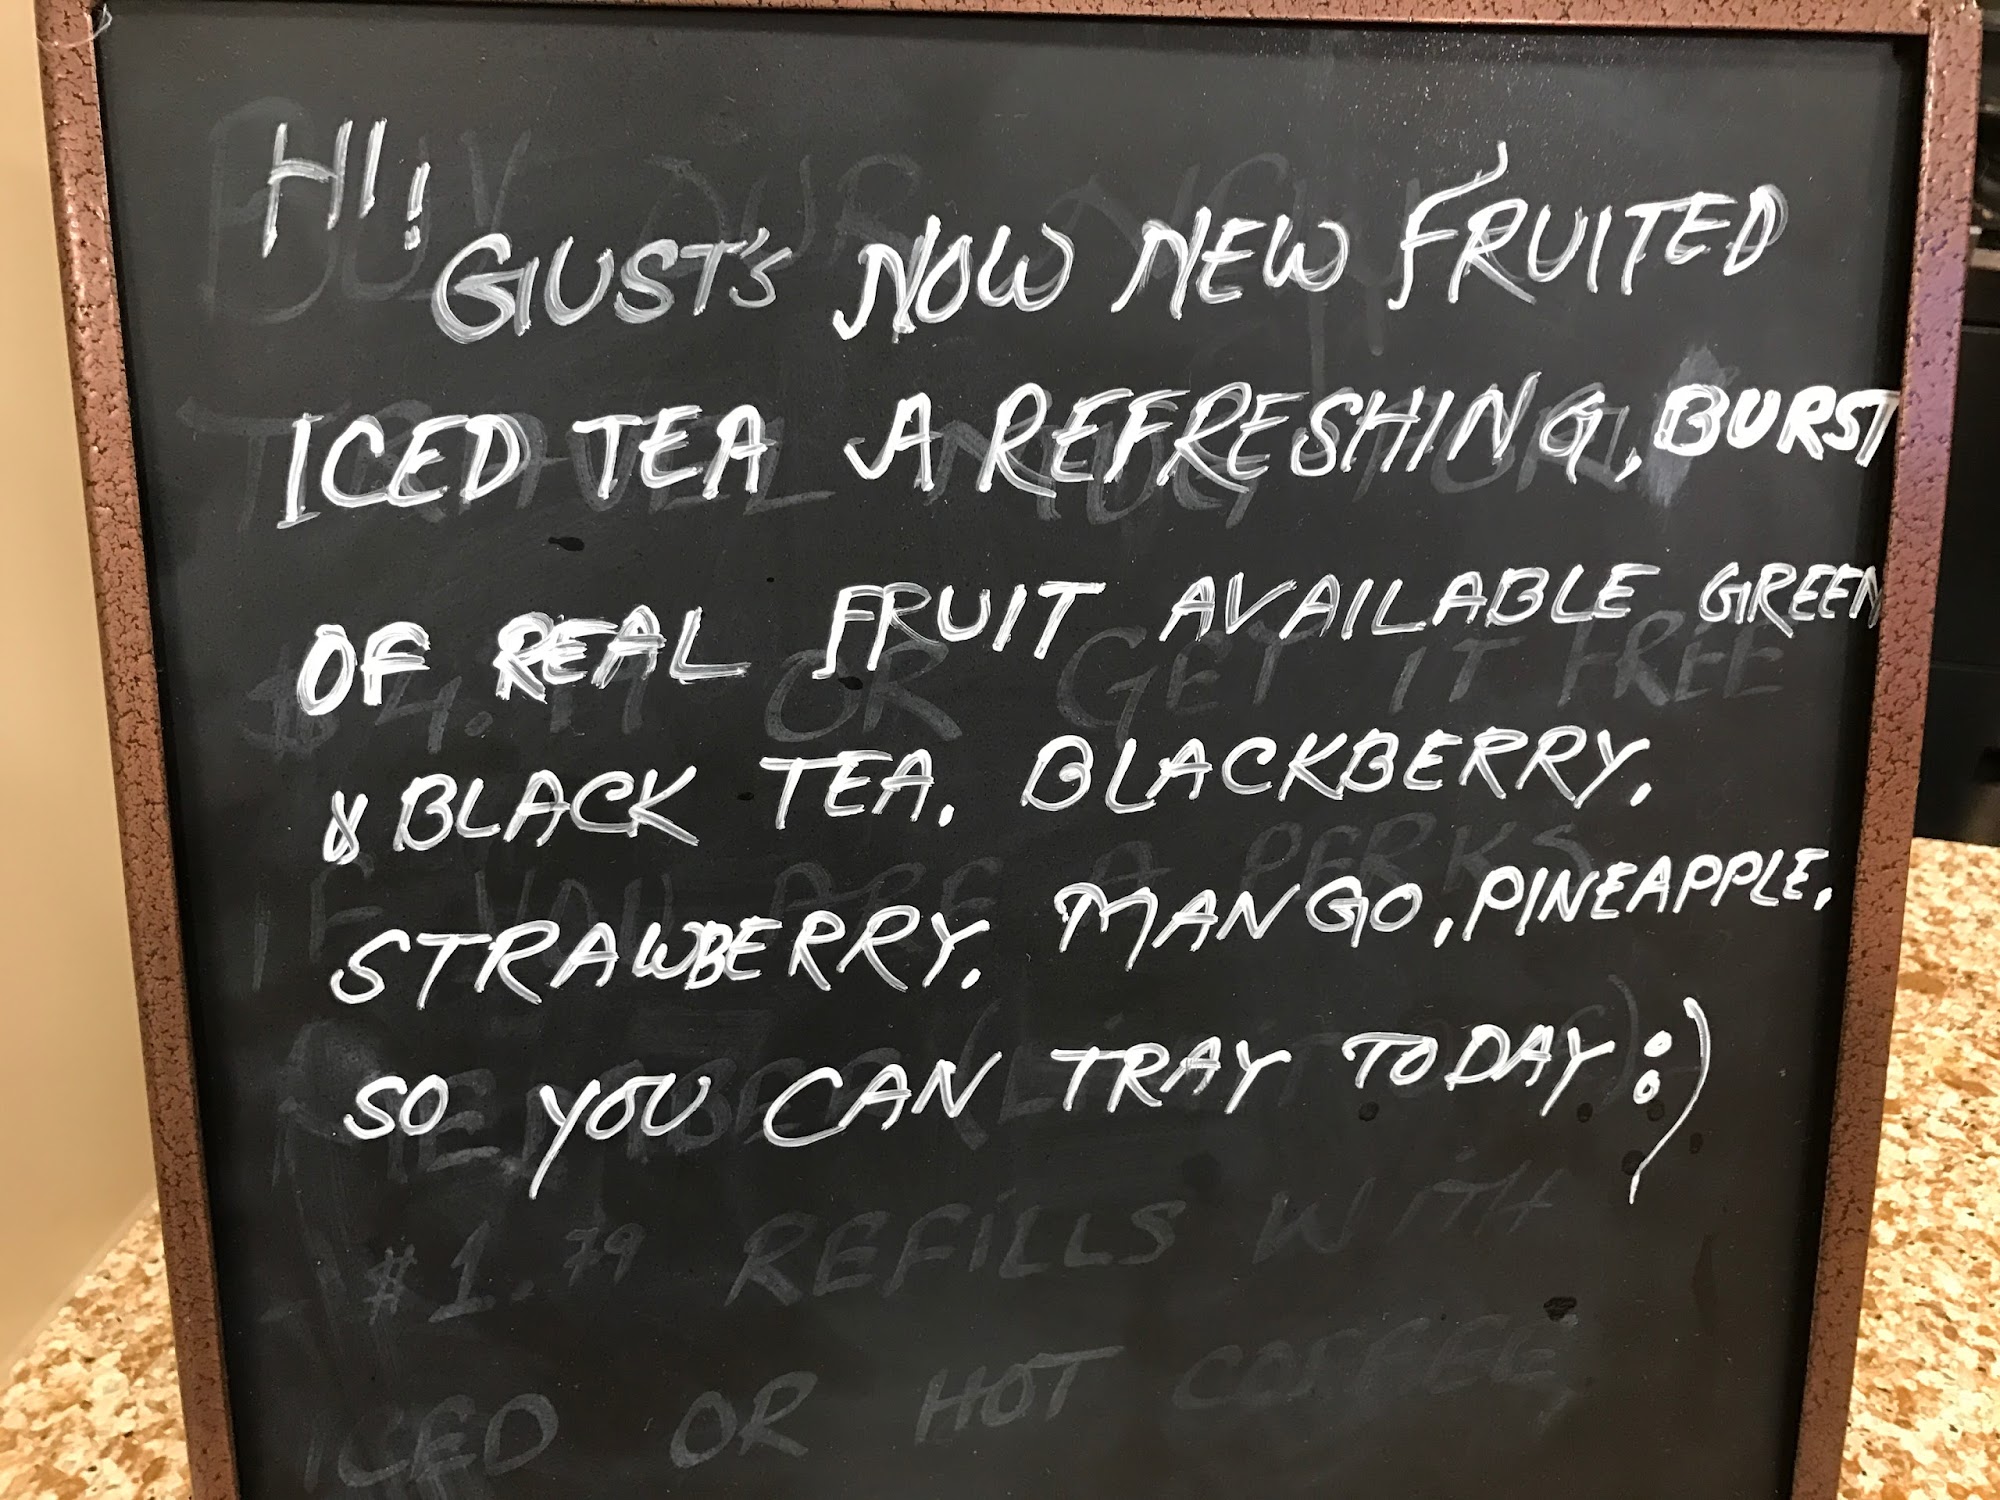 HI!
GUST'S NOW NEW FRUITED
ICED TEA A REFRESHING, BURST
OF REAL FRUIT AVAILABLE GREEN
& BLACK TEA. BLACKBERRY,
STRAWBERRY, MANGO, PINEAPPLE,
SO YOU CAN TRAY TODAY :)
BUY OUR NEW
TRAVEL MUG FOR
OR GET IT FREE
IF YOU ARE A PERKS
MEMBER (Limit
$1.79 REFILLS WITH
ICED OR HOT COFFEE,